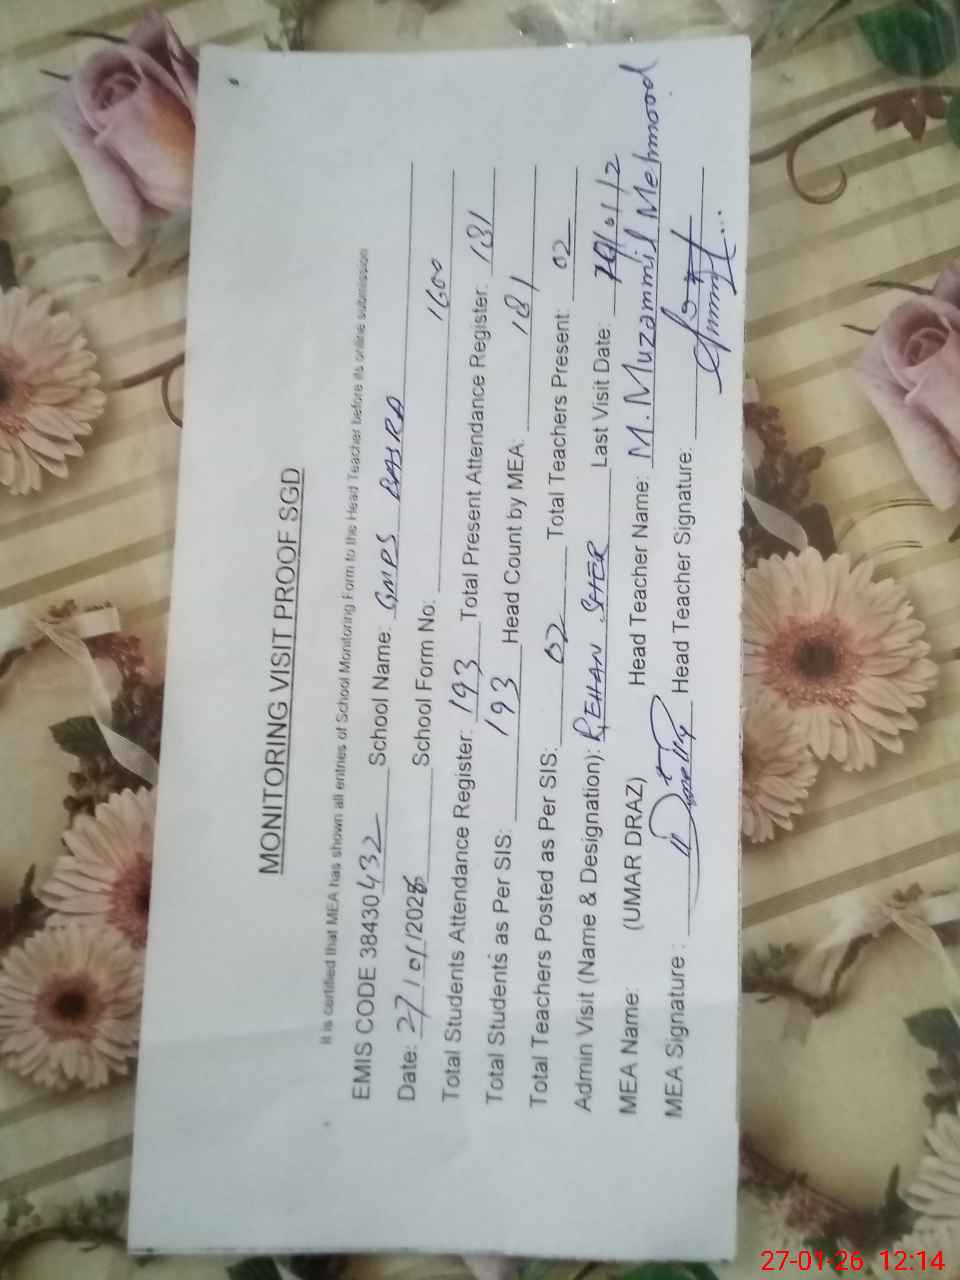 MONITORING VISIT PROOF SGD
It is certified that MEA has shown all entries of School Monitoring Form to the Head Teacher before its online submission
EMIS CODE 38430432 School Name: GMPS BASRA
Date: 27/01/2026 School Form No: 1600
Total Students Attendance Register: 193 Total Present Attendance Register: 181
Total Students as Per SIS: 193 Head Count by MEA: 181
Total Teachers Posted as Per SIS: 02 Total Teachers Present: 02
Admin Visit (Name & Designation): REHAN SHER Last Visit Date:
MEA Name: (UMAR DRAZ) Head Teacher Name: M. Muzammil Mehmood
MEA Signature : Head Teacher Signature:
27-01-26 12:14